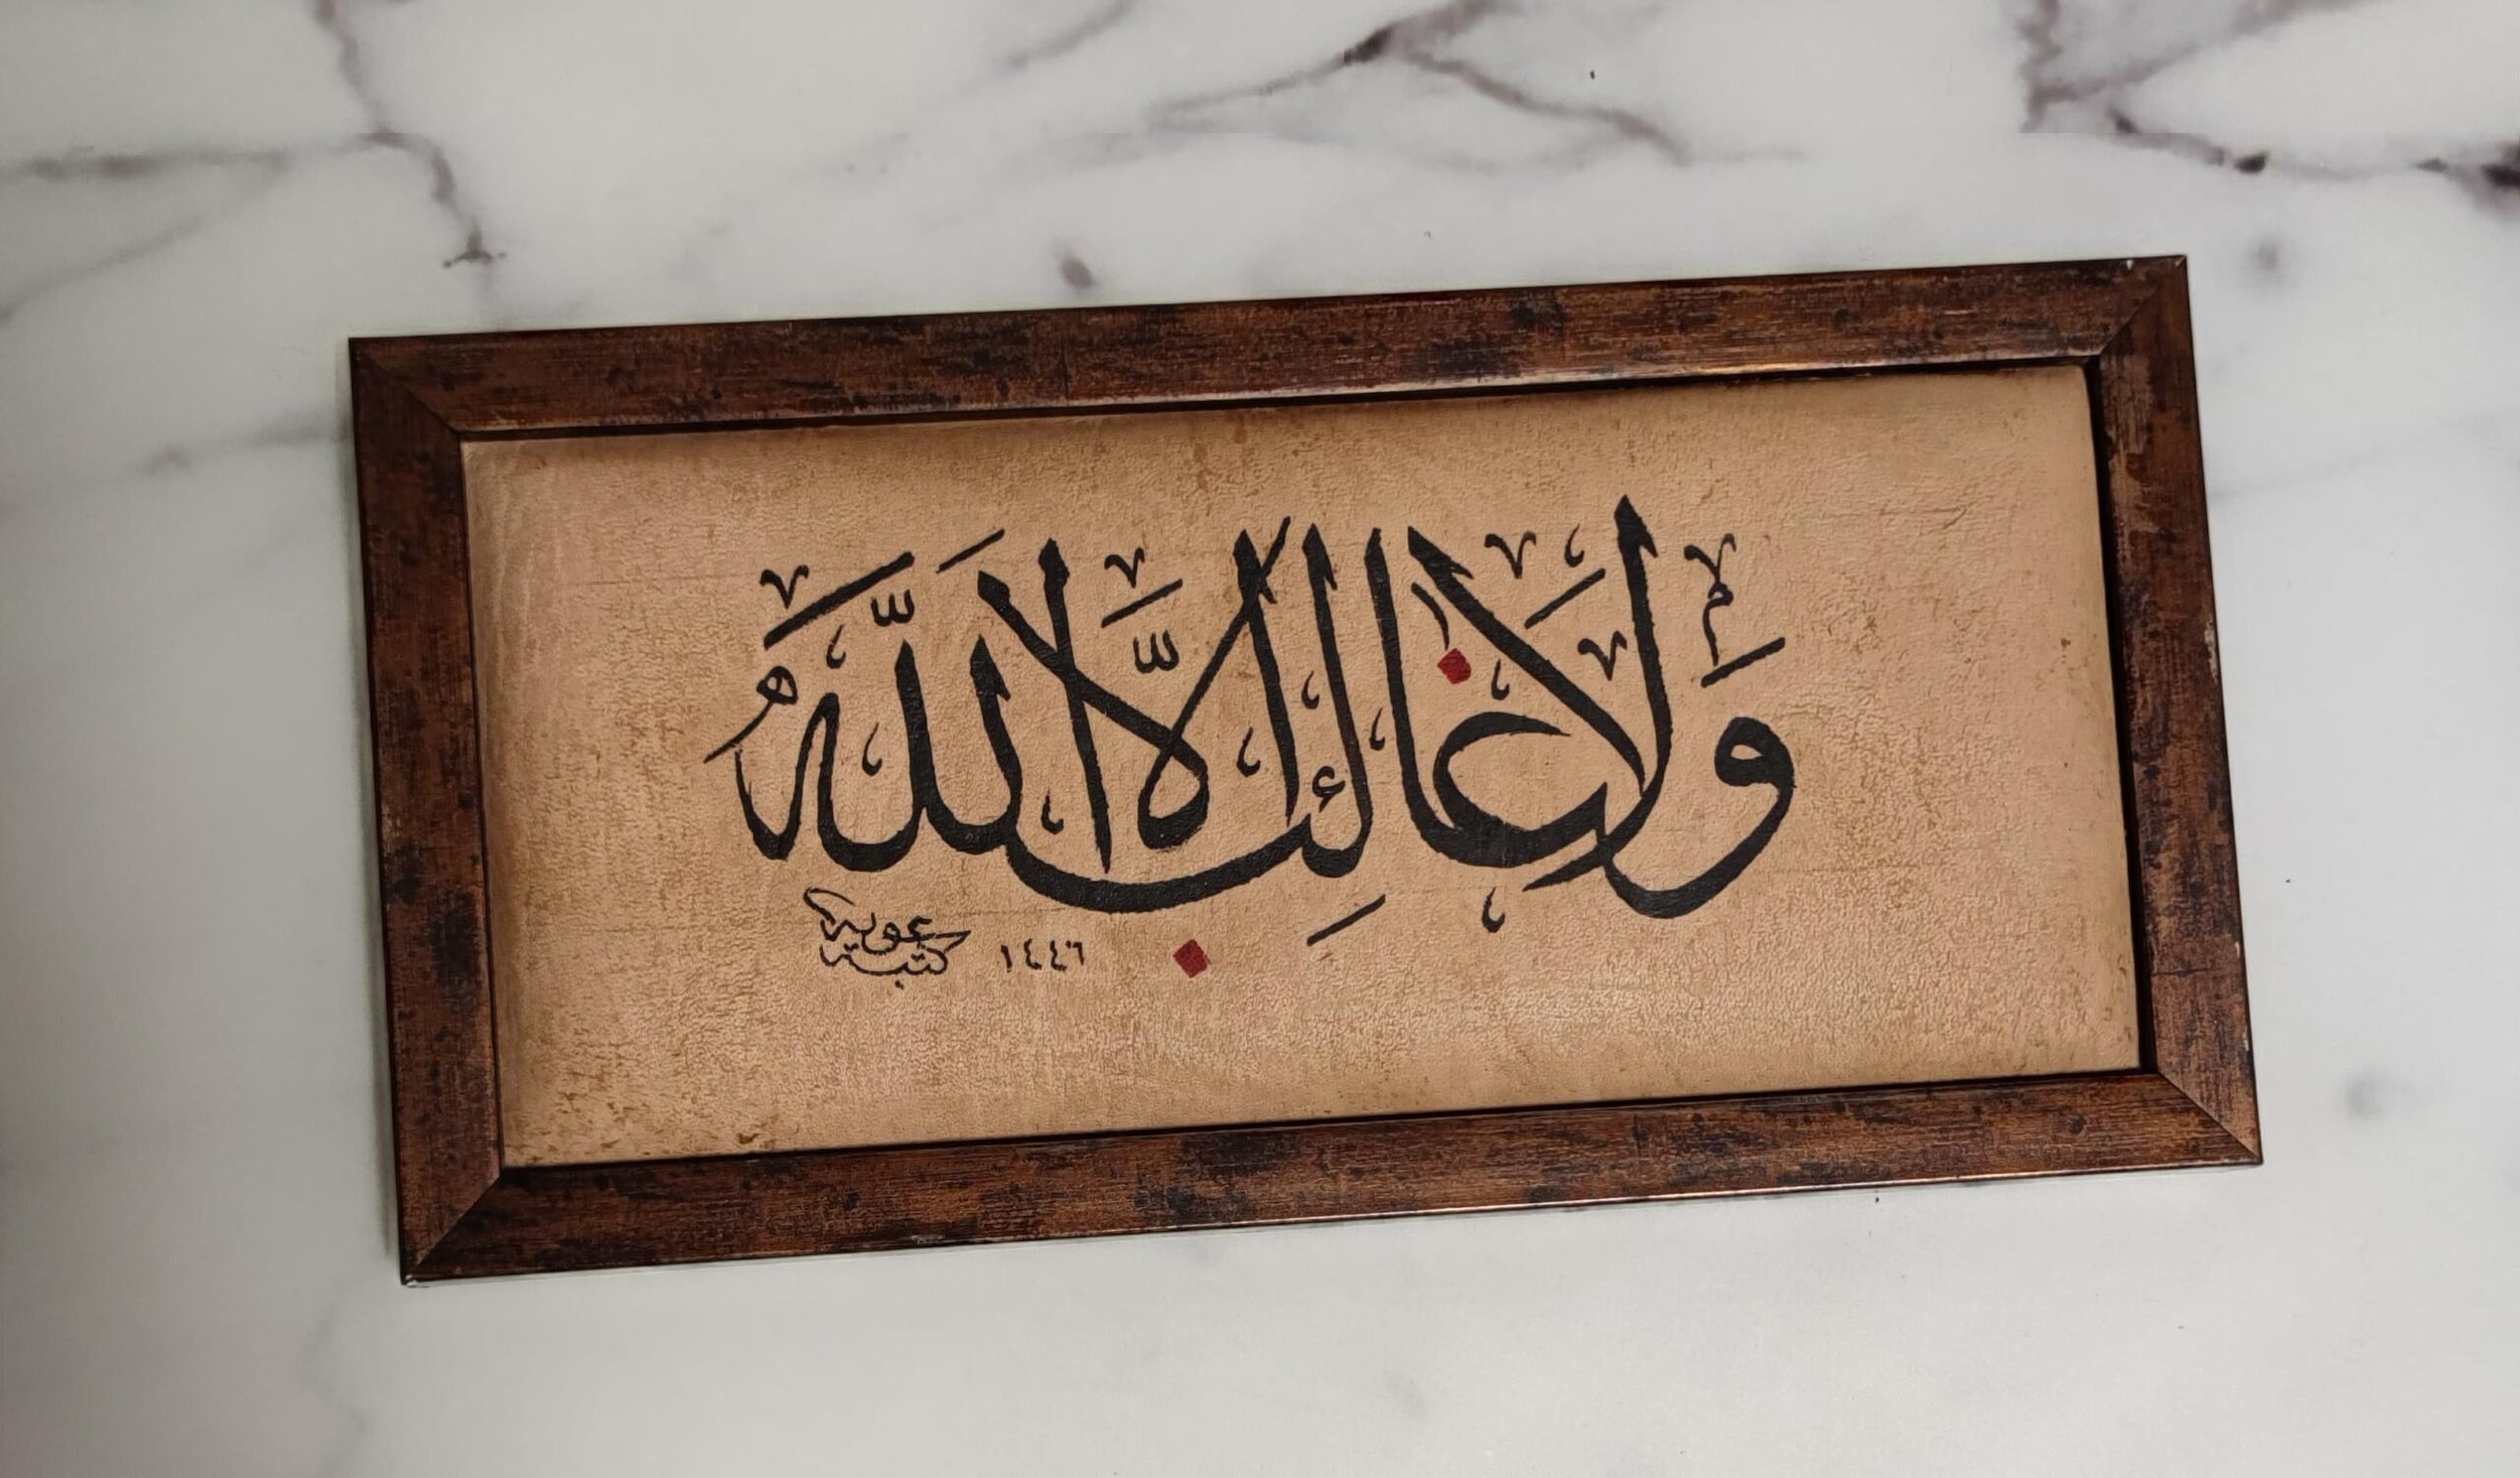 ولا غالب إلا الله
كتبه عوية ١٤٤٦